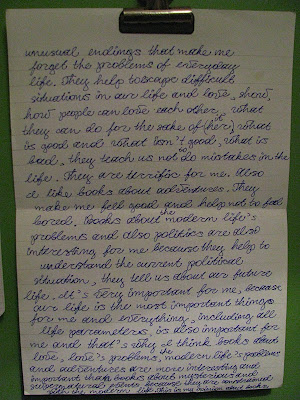 unusual endings that make me
forget the problems of everyday
life. They help to scape difficult
situations in our life and love, show,
how people can love each other, what
they can do for the sake of (her) it what
is good and what isn't good, what is
bad, they teach us not to do mistakes in the
life. They are terrific for me. Also
I like books about adventures. They
make me feel good and help not to feel
bored. Books about the modern life's
problems and also politics are also
interesting for me because they help to
understand the current political
situation, they tell us about our future
life. It's very important for me, because
our life is the most important things
for me and everything, including all
life parameters, is also important for
me and that's why I think books about
love, love's problems, the modern life's problems
and adventures are more interesting and
important than books about mysterious and
supernatural events because they are connected
with the modern life. This is my opinion about books.